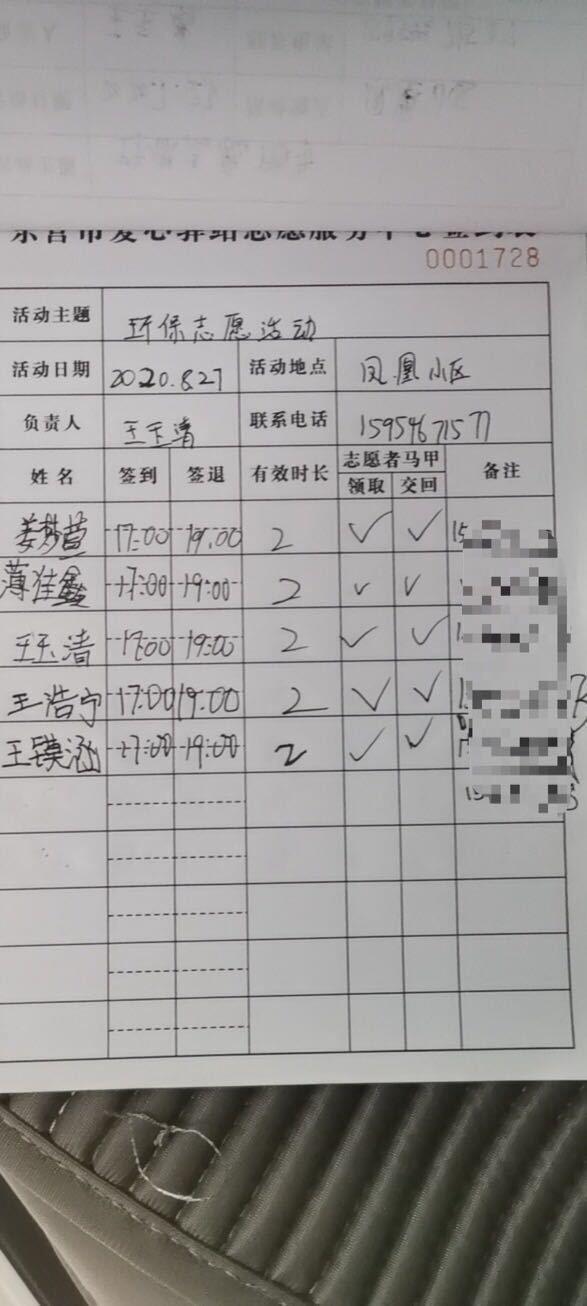 东营市爱心驿站志愿服务中心签到表
0001728
活动主题 环保志愿活动
活动日期 2020.8.27 活动地点 凤凰小区
负责人 王玉清 联系电话 15954671577
姓名 签到 签退 有效时长 志愿者马甲 备注
领取 交回
姜梦萱 17:00 19:00 2 ✓ ✓ 15
薄佳鑫 17:00 19:00 2 ✓ ✓
王玉清 17:00 19:00 2 ✓ ✓
王浩宁 17:00 19:00 2 ✓ ✓
王镆涵 17:00 19:00 2 ✓ ✓